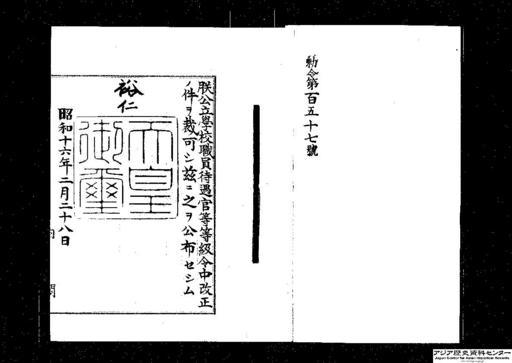 勅令第百五十七號
朕公立學校職員待遇官等等級令中改正
ノ件ヲ裁可シ茲ニ之ヲ公布セシム
裕仁
天皇御璽
昭和十六年二月二十八日
内閣
アジア歴史資料センター
Japan Center for Asian Historical Records